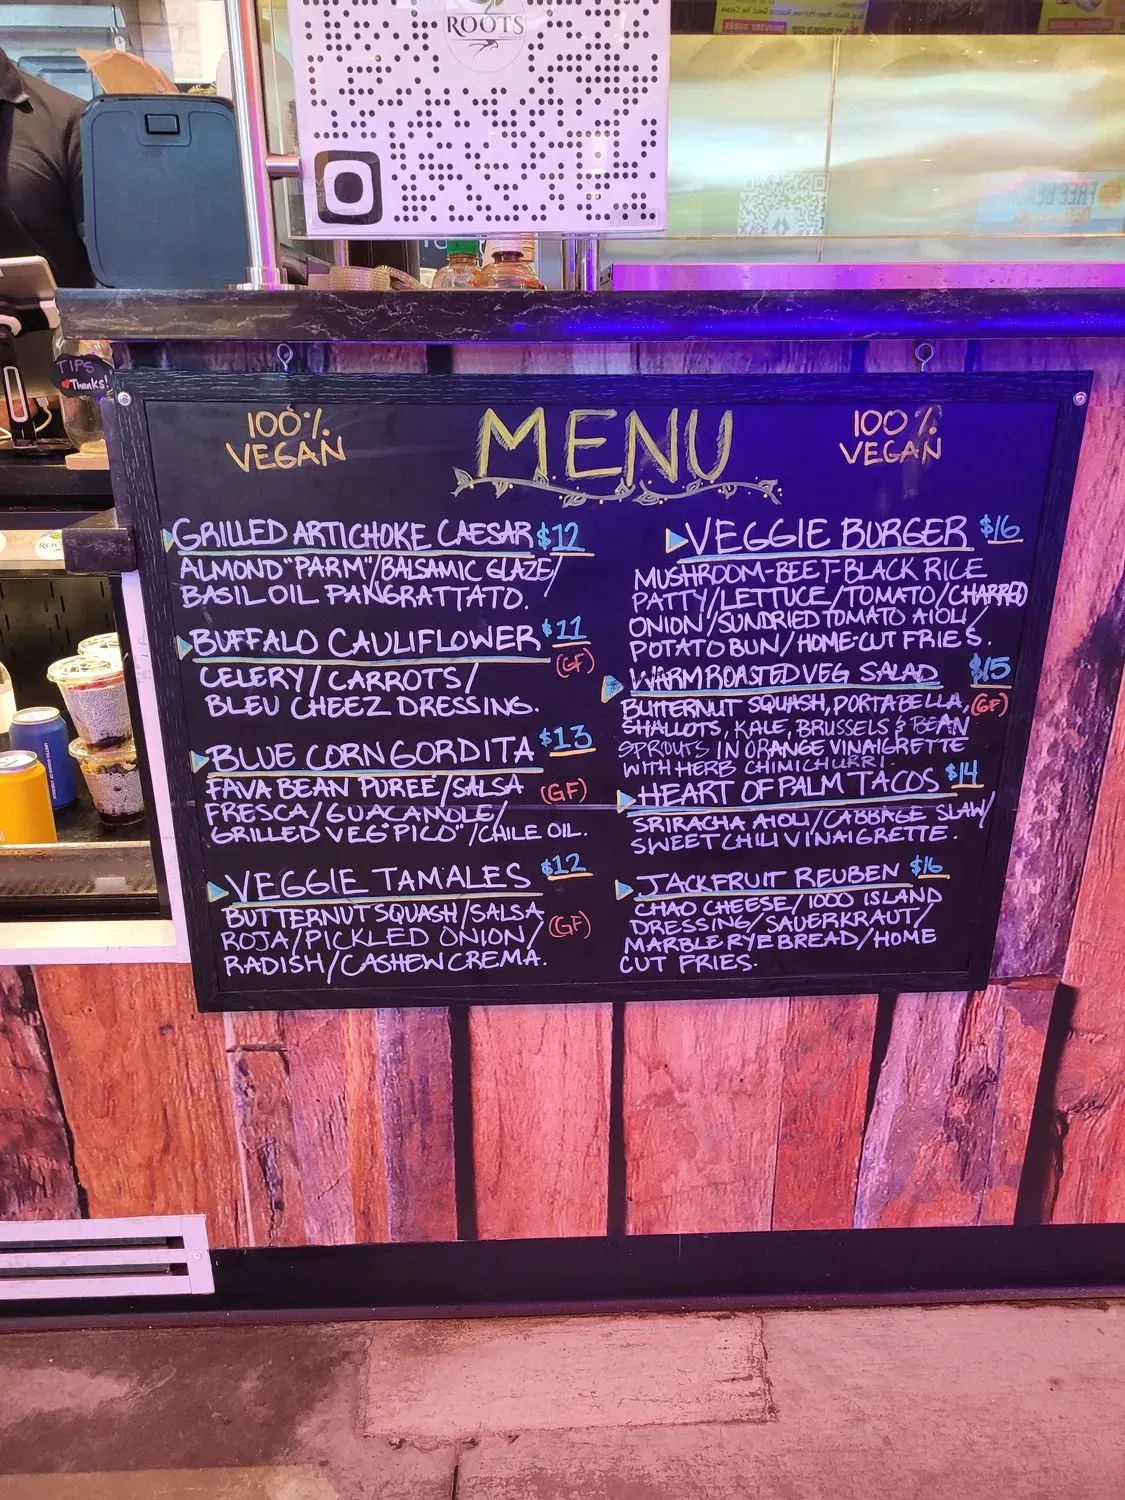 ROOTS
TIPS
Thanks!
100% VEGAN
MENU
100% VEGAN
GRILLED ARTICHOKE CAESAR $12
ALMOND "PARM"/BALSAMIC GLAZE/
BASIL OIL PANGRATTATO.
BUFFALO CAULIFLOWER $11
(GF)
CELERY/CARROTS/
BLEU CHEEZ DRESSING.
BLUE CORN GORDITA $13
FAVA BEAN PUREE/SALSA (GF)
FRESCA/GUACAMOLE/
GRILLED VEG "PICO"/CHILE OIL.
VEGGIE TAMALES $12
BUTTERNUT SQUASH/SALSA
ROJA/PICKLED ONION/ (GF)
RADISH/CASHEW CREMA.
VEGGIE BURGER $16
MUSHROOM-BEET-BLACK RICE
PATTY/LETTUCE/TOMATO/CHARRED
ONION/SUNDRIED TOMATO AIOLI/
POTATO BUN/HOME-CUT FRIES.
WARM ROASTED VEG SALAD $15
BUTTERNUT SQUASH, PORTABELLA, (GF)
SHALLOTS, KALE, BRUSSELS & BEAN
SPROUTS IN ORANGE VINAIGRETTE
WITH HERB CHIMICHURRI.
HEART OF PALM TACOS $14
SRIRACHA AIOLI/CABBAGE SLAW/
SWEET CHILI VINAIGRETTE.
JACKFRUIT REUBEN $16
CHAO CHEESE/1000 ISLAND
DRESSING/SAUERKRAUT/
MARBLE RYE BREAD/HOME
CUT FRIES.